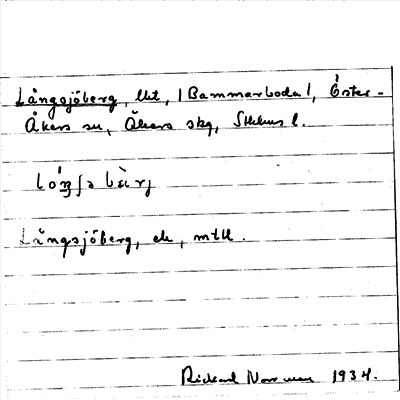 Långsjöberg, lht, (Bammarboda), Öster-
Åkers sn, Åkers skg, Sthlms l.
Långsjöberg, ek, mtbl.
Rickard Norrman 1934.